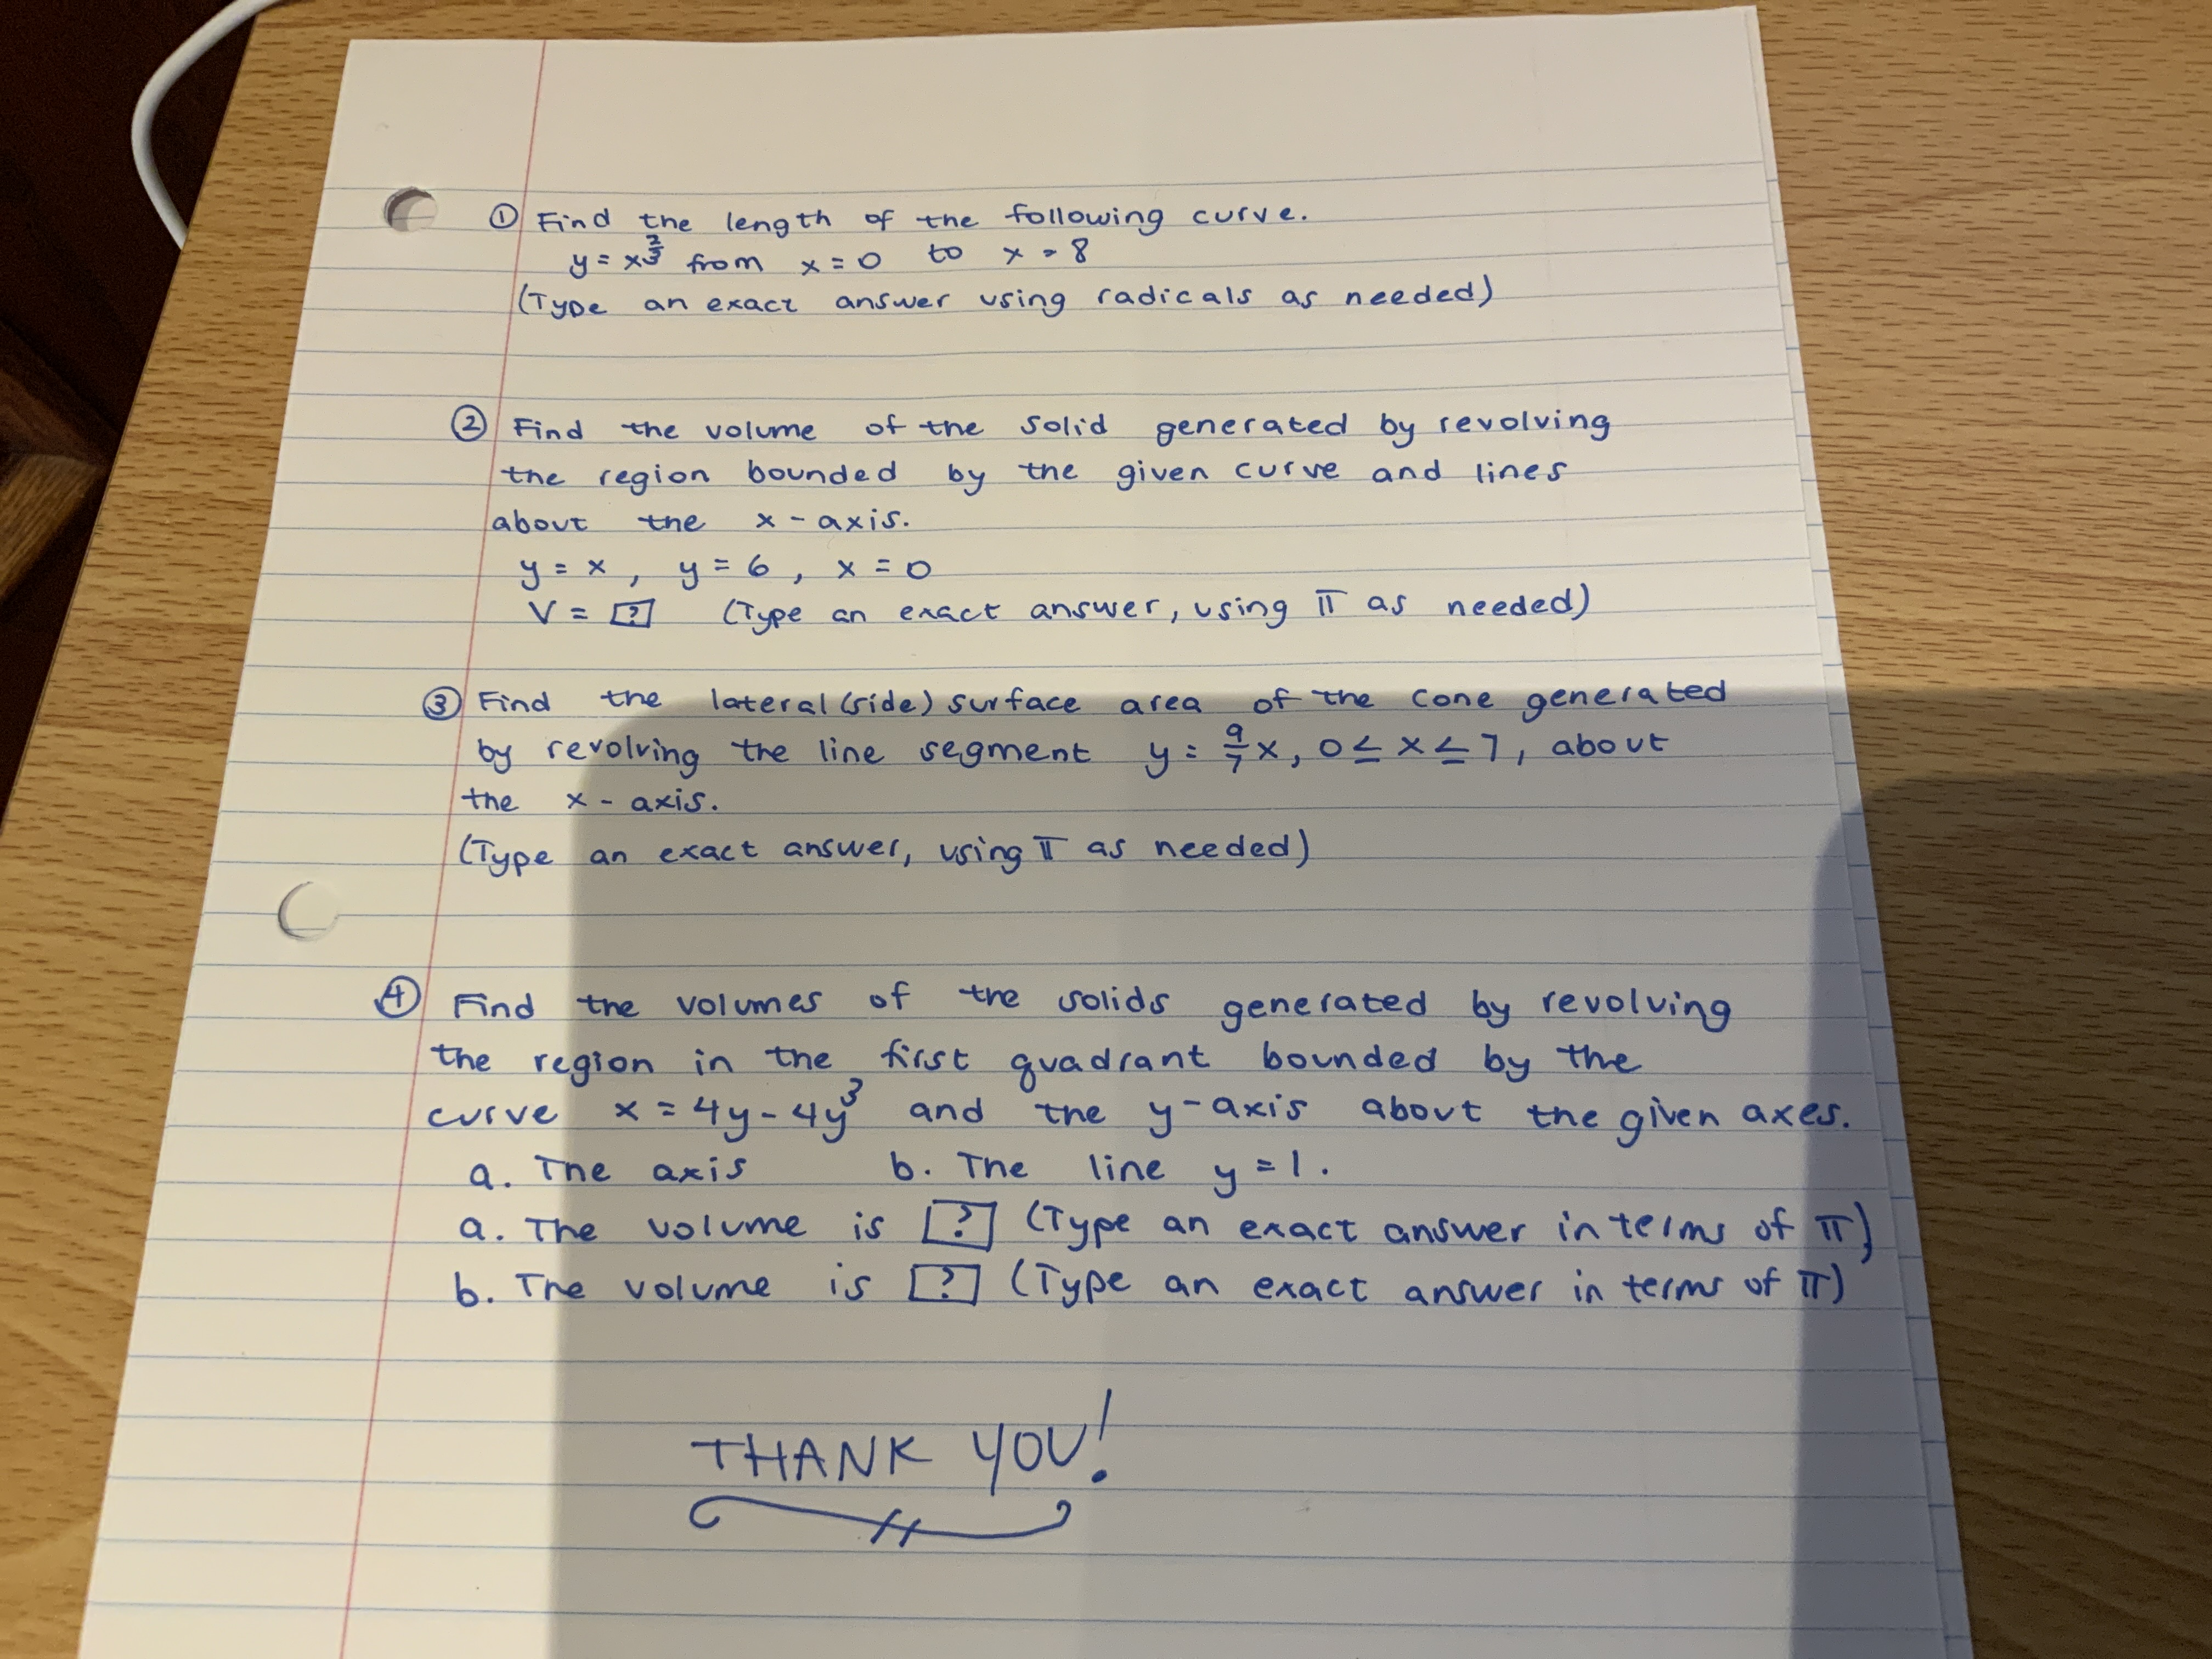 ① Find the length of the following curve.
y = x^(2/3) from x = 0 to x = 8
(Type an exact answer using radicals as needed)
② Find the volume of the solid generated by revolving
the region bounded by the given curve and lines
about the x-axis.
y = x, y = 6, x = 0
V = [?] (Type an exact answer, using π as needed)
③ Find the lateral (side) surface area of the cone generated
by revolving the line segment y = 9/7 x, 0 ≤ x ≤ 7, about
the x-axis.
(Type an exact answer, using π as needed)
④ Find the volumes of the solids generated by revolving
the region in the first quadrant bounded by the
curve x = 4y - 4y³ and the y-axis about the given axes.
a. The axis b. The line y = 1.
a. The volume is [?] (Type an exact answer in terms of π)
b. The volume is [?] (Type an exact answer in terms of π)
THANK YOU!